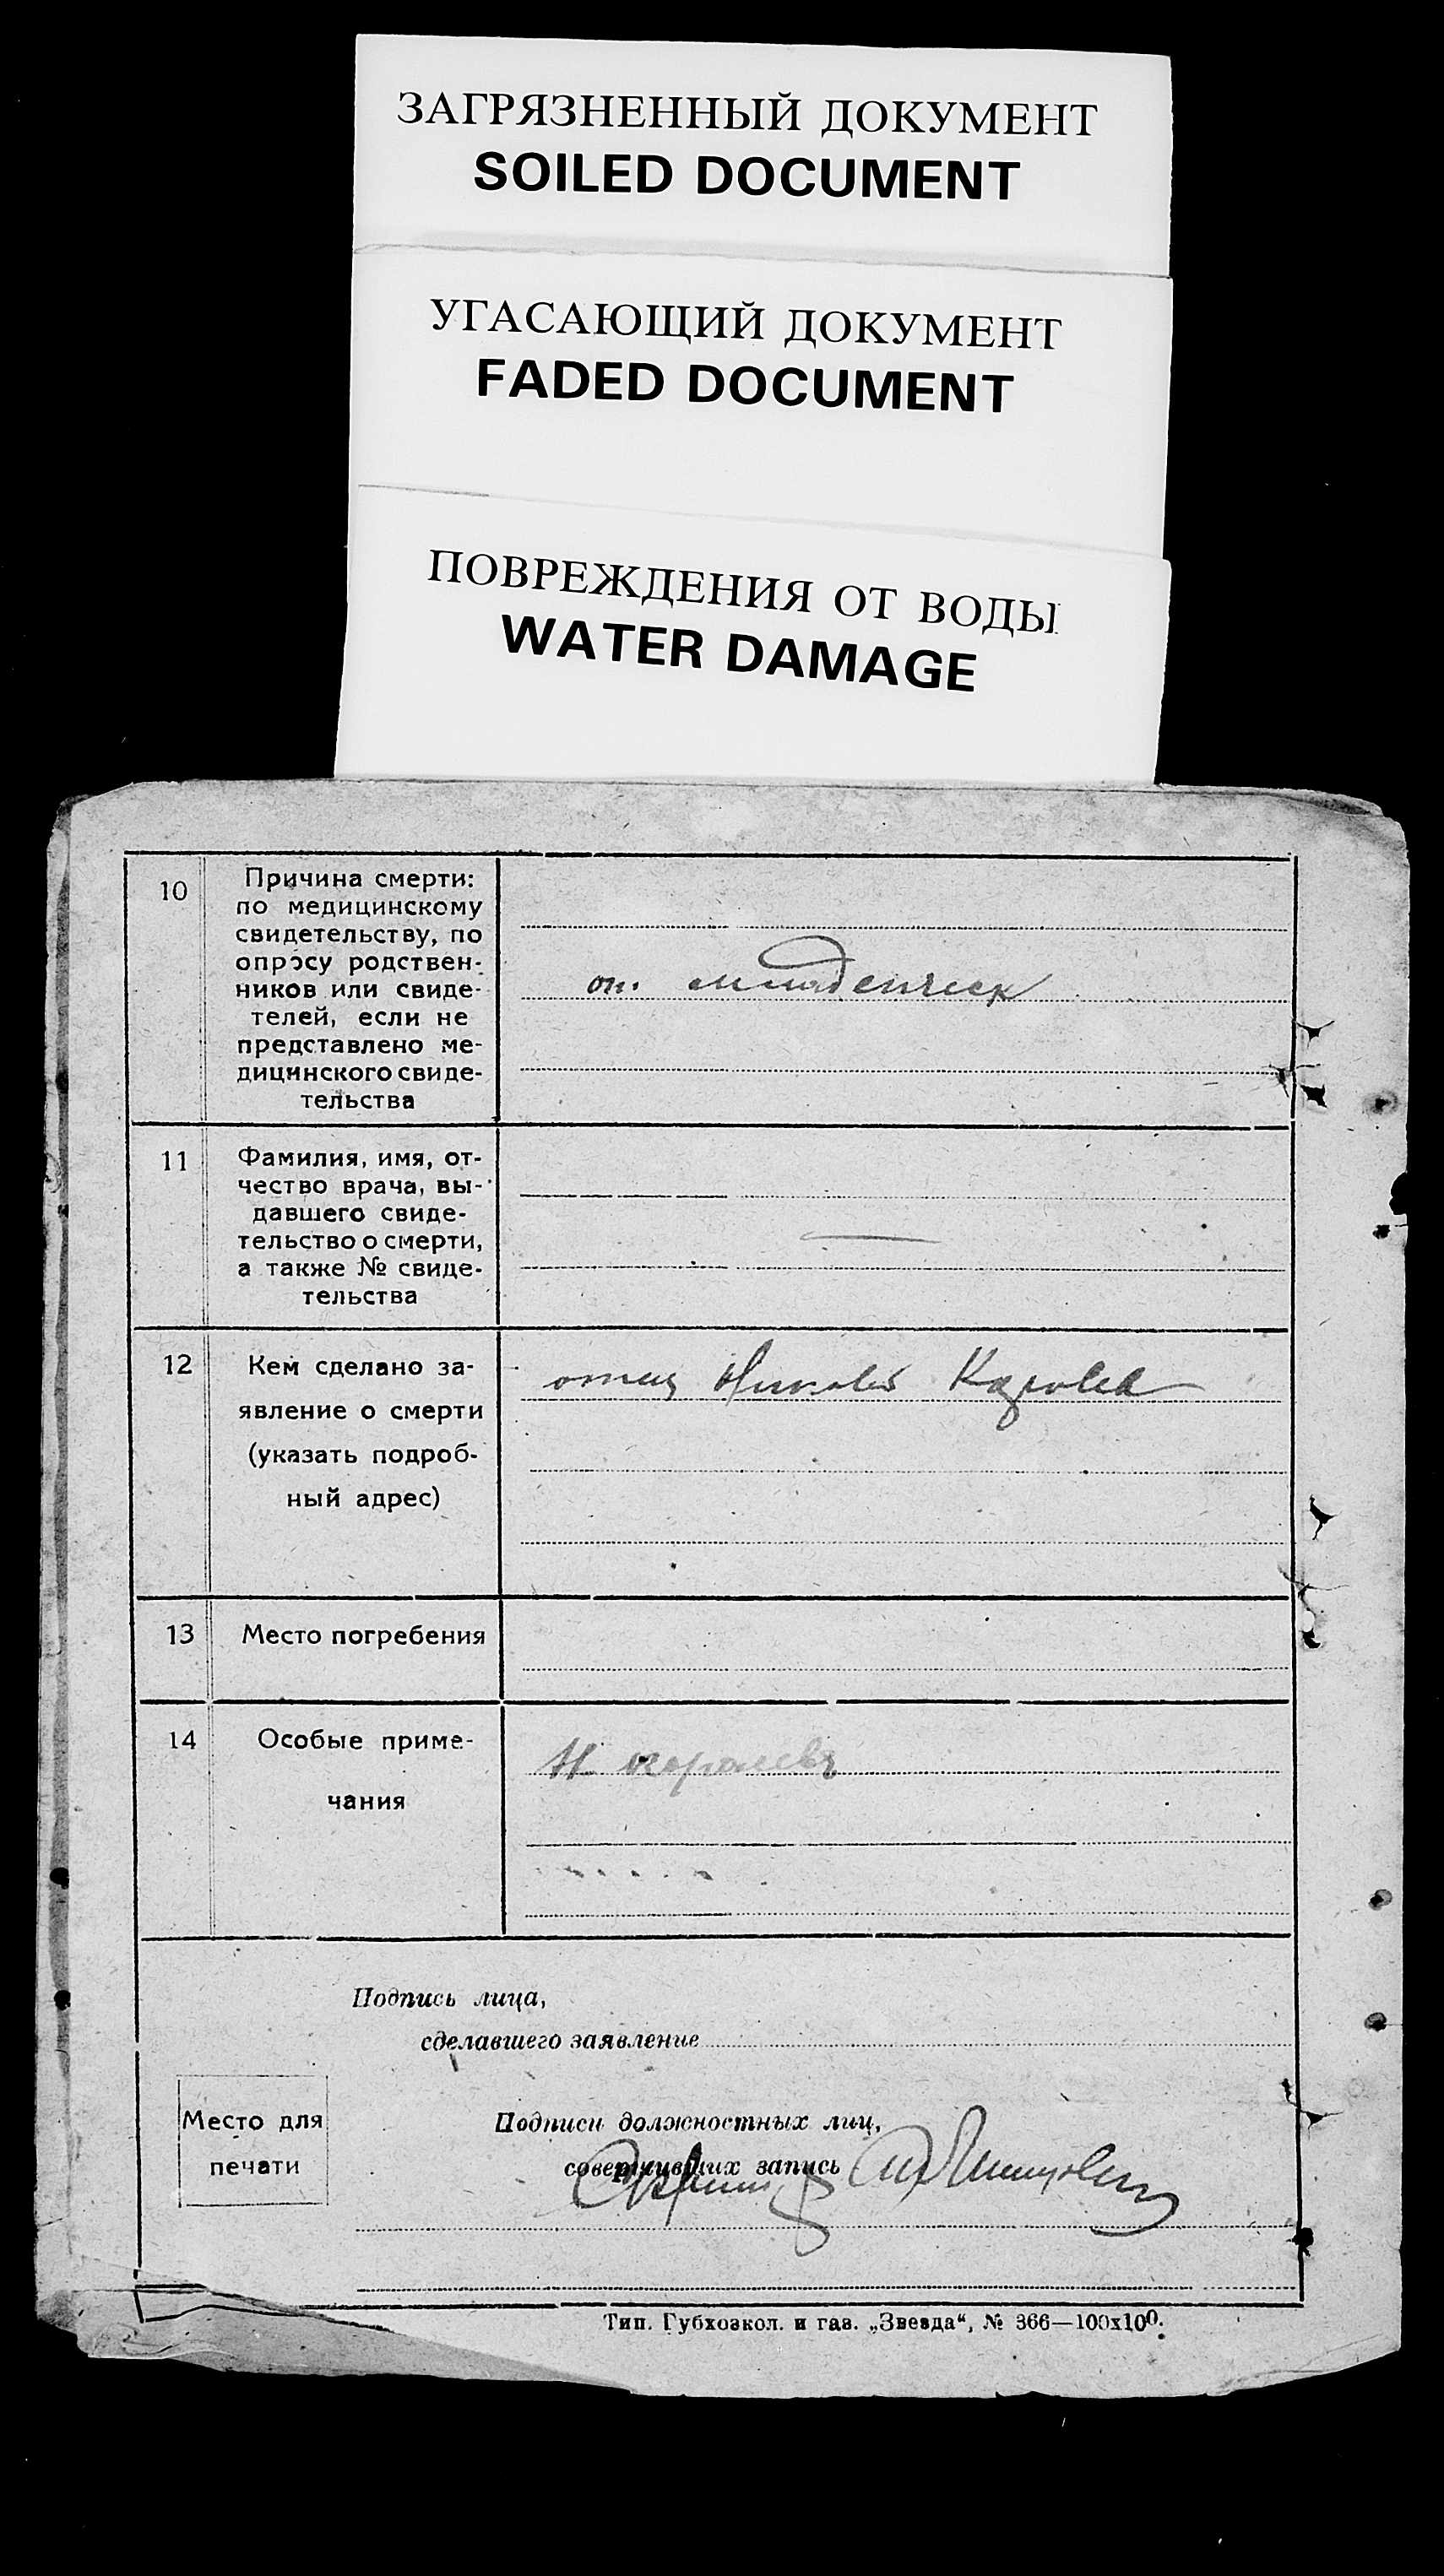 ЗАГРЯЗНЕННЫЙ ДОКУМЕНТ
SOILED DOCUMENT
УГАСАЮЩИЙ ДОКУМЕНТ
FADED DOCUMENT
ПОВРЕЖДЕНИЯ ОТ ВОДЫ
WATER DAMAGE
10
Причина смерти:
по медицинскому
свидетельству, по
опросу родствен-
ников или свиде-
телей, если не
представлено ме-
дицинского свиде-
тельства
от младенческ
11
Фамилия, имя, от-
чество врача, вы-
давшего свиде-
тельство о смерти,
а также № свиде-
тельства
12
Кем сделано за-
явление о смерти
(указать подроб-
ный адрес)
отец Николай
13
Место погребения
14
Особые приме-
чания
Н королевъ
Подпись лица,
сделавшего заявление
Место для
печати
Подписи должностных лиц,
совершивших запись
Тип. Губхозкол. и газ. „Звезда“, № 366—100х100.